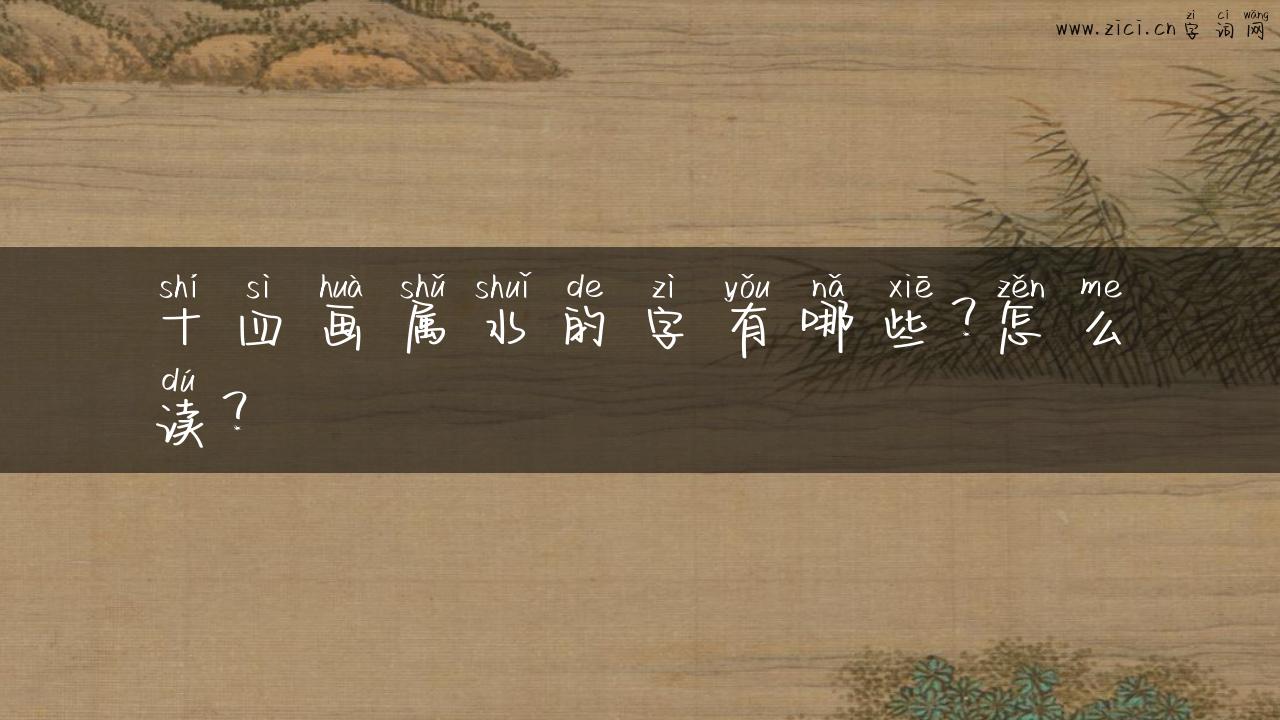 zì cí wǎng
www.zici.cn字词网
shí sì huà shǔ shuǐ de zì yǒu nǎ xiē zěn me
十四画属水的字有哪些?怎么
dú
读?